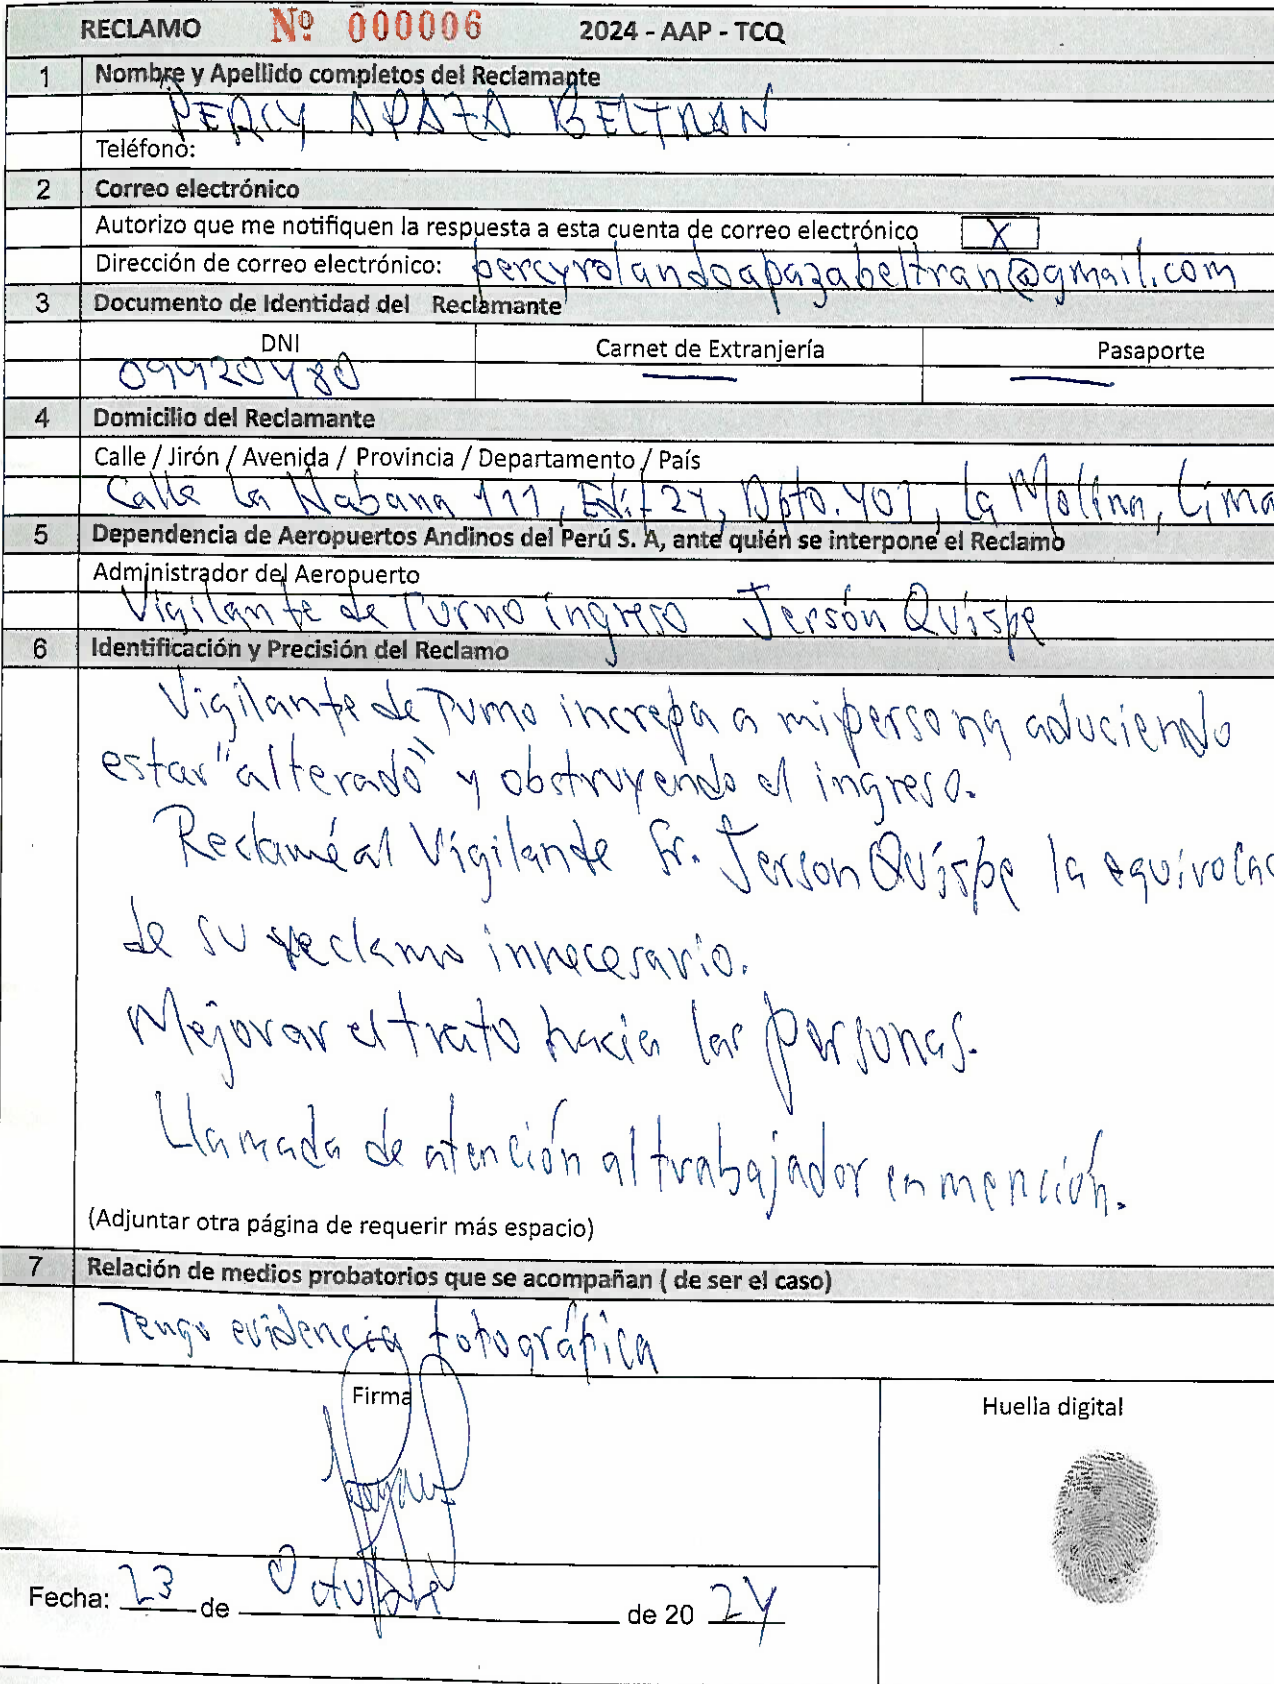 RECLAMO Nº 000006 2024 - AAP - TCQ
1 Nombre y Apellido completos del Reclamante
PERCY APAZA BELTRAN
Teléfono:
2 Correo electrónico
Autorizo que me notifiquen la respuesta a esta cuenta de correo electrónico X
Dirección de correo electrónico: percyrolandoapazabeltran@gmail.com
3 Documento de Identidad del Reclamante
DNI Carnet de Extranjería Pasaporte
09920480 — —
4 Domicilio del Reclamante
Calle / Jirón / Avenida / Provincia / Departamento / País
Calle La Habana 111, Edif 24, Dpto. 401, La Molina, Lima
5 Dependencia de Aeropuertos Andinos del Perú S. A, ante quién se interpone el Reclamo
Administrador del Aeropuerto
Vigilante de Turno ingreso Jersón Quispe
6 Identificación y Precisión del Reclamo
Vigilante de Turno increpa a mi persona aduciendo
estar "alterado" y obstruyendo el ingreso.
Reclamé al Vigilante Sr. Jerson Quispe la equivocac
de su reclamo innecesario.
Mejorar el trato hacia las personas.
Llamada de atención al trabajador en mención.
(Adjuntar otra página de requerir más espacio)
7 Relación de medios probatorios que se acompañan ( de ser el caso)
Tengo evidencia fotográfica
Firma Huella digital
Fecha: 23 de Octubre de 20 24